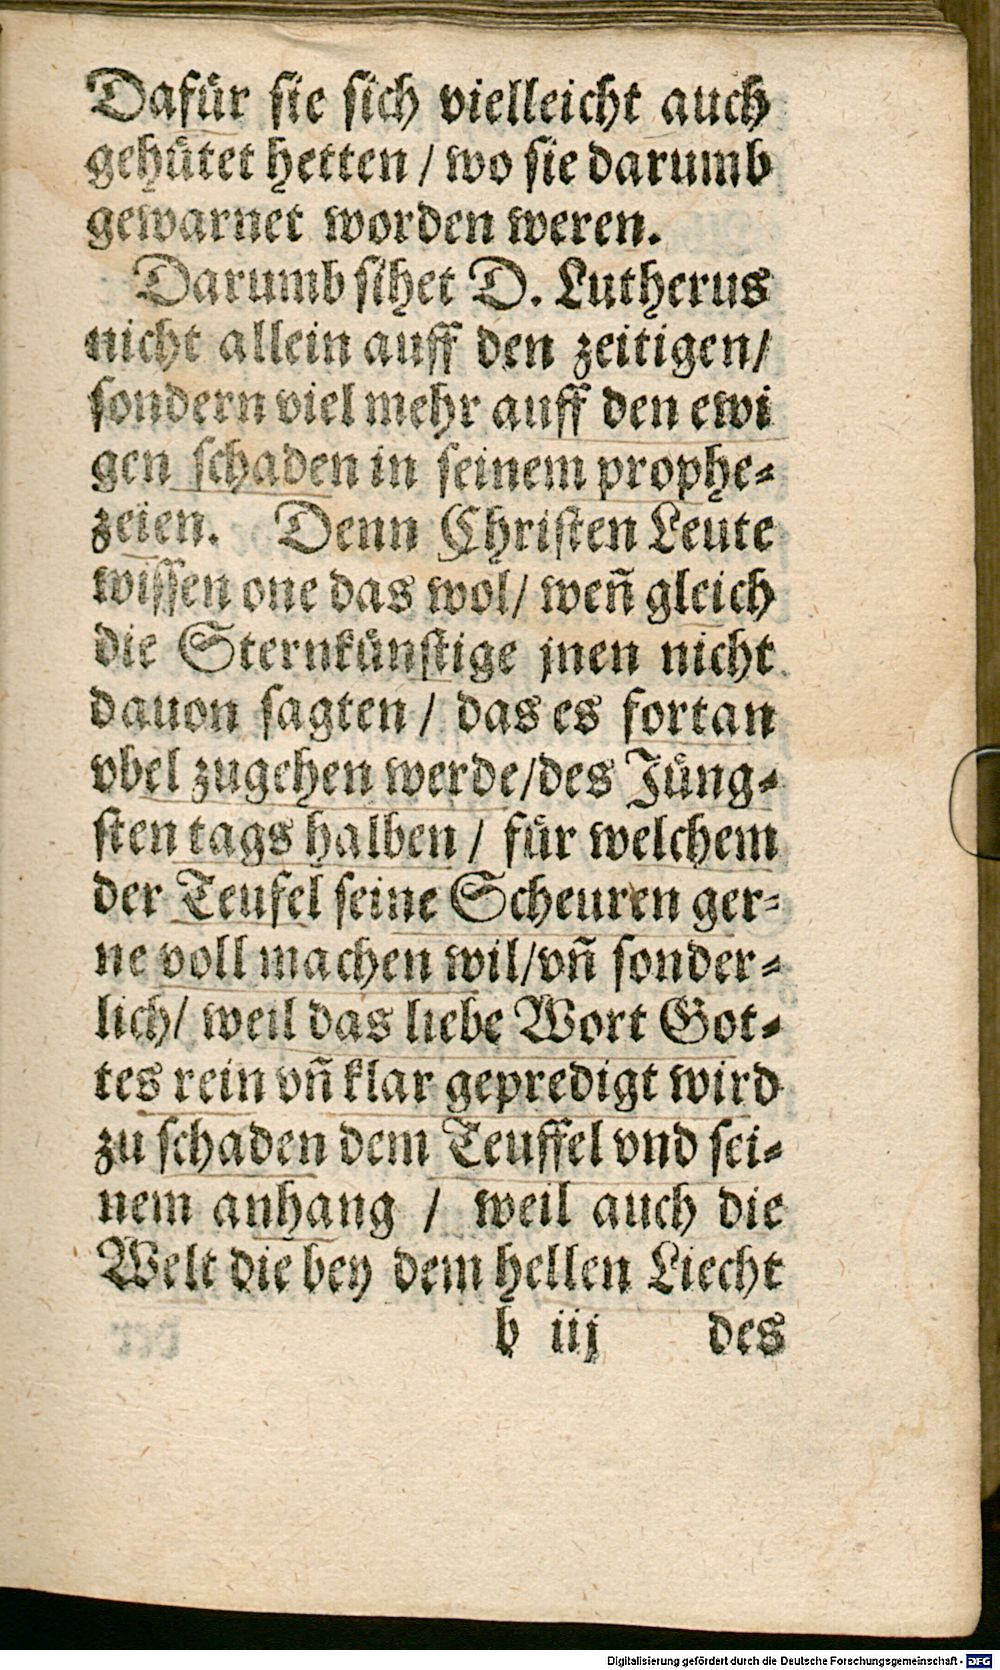 Dafür sie sich vielleicht auch
gehütet hetten / wo sie darumb
gewarnet worden weren.
Darumb sihet D. Lutherus
nicht allein auff den zeitigen/
sondern viel mehr auff den ewi
gen schaden in seinem prophe-
zeien. Denn Christen Leute
wissen one das wol/ weñ gleich
die Sternkünstige jnen nicht
dauon sagten / das es fortan
vbel zugehen werde/des Jüng-
sten tags halben / für welchem
der Teufel seine Scheuren ger-
ne voll machen wil/vñ sonder-
lich/ weil das liebe Wort Got-
tes rein vñ klar gepredigt wird
zu schaden dem Teuffel vnd sei-
nem anhang / weil auch die
Welt die bey dem hellen Liecht
b iij des
Digitalisierung gefördert durch die Deutsche Forschungsgemeinschaft - DFG